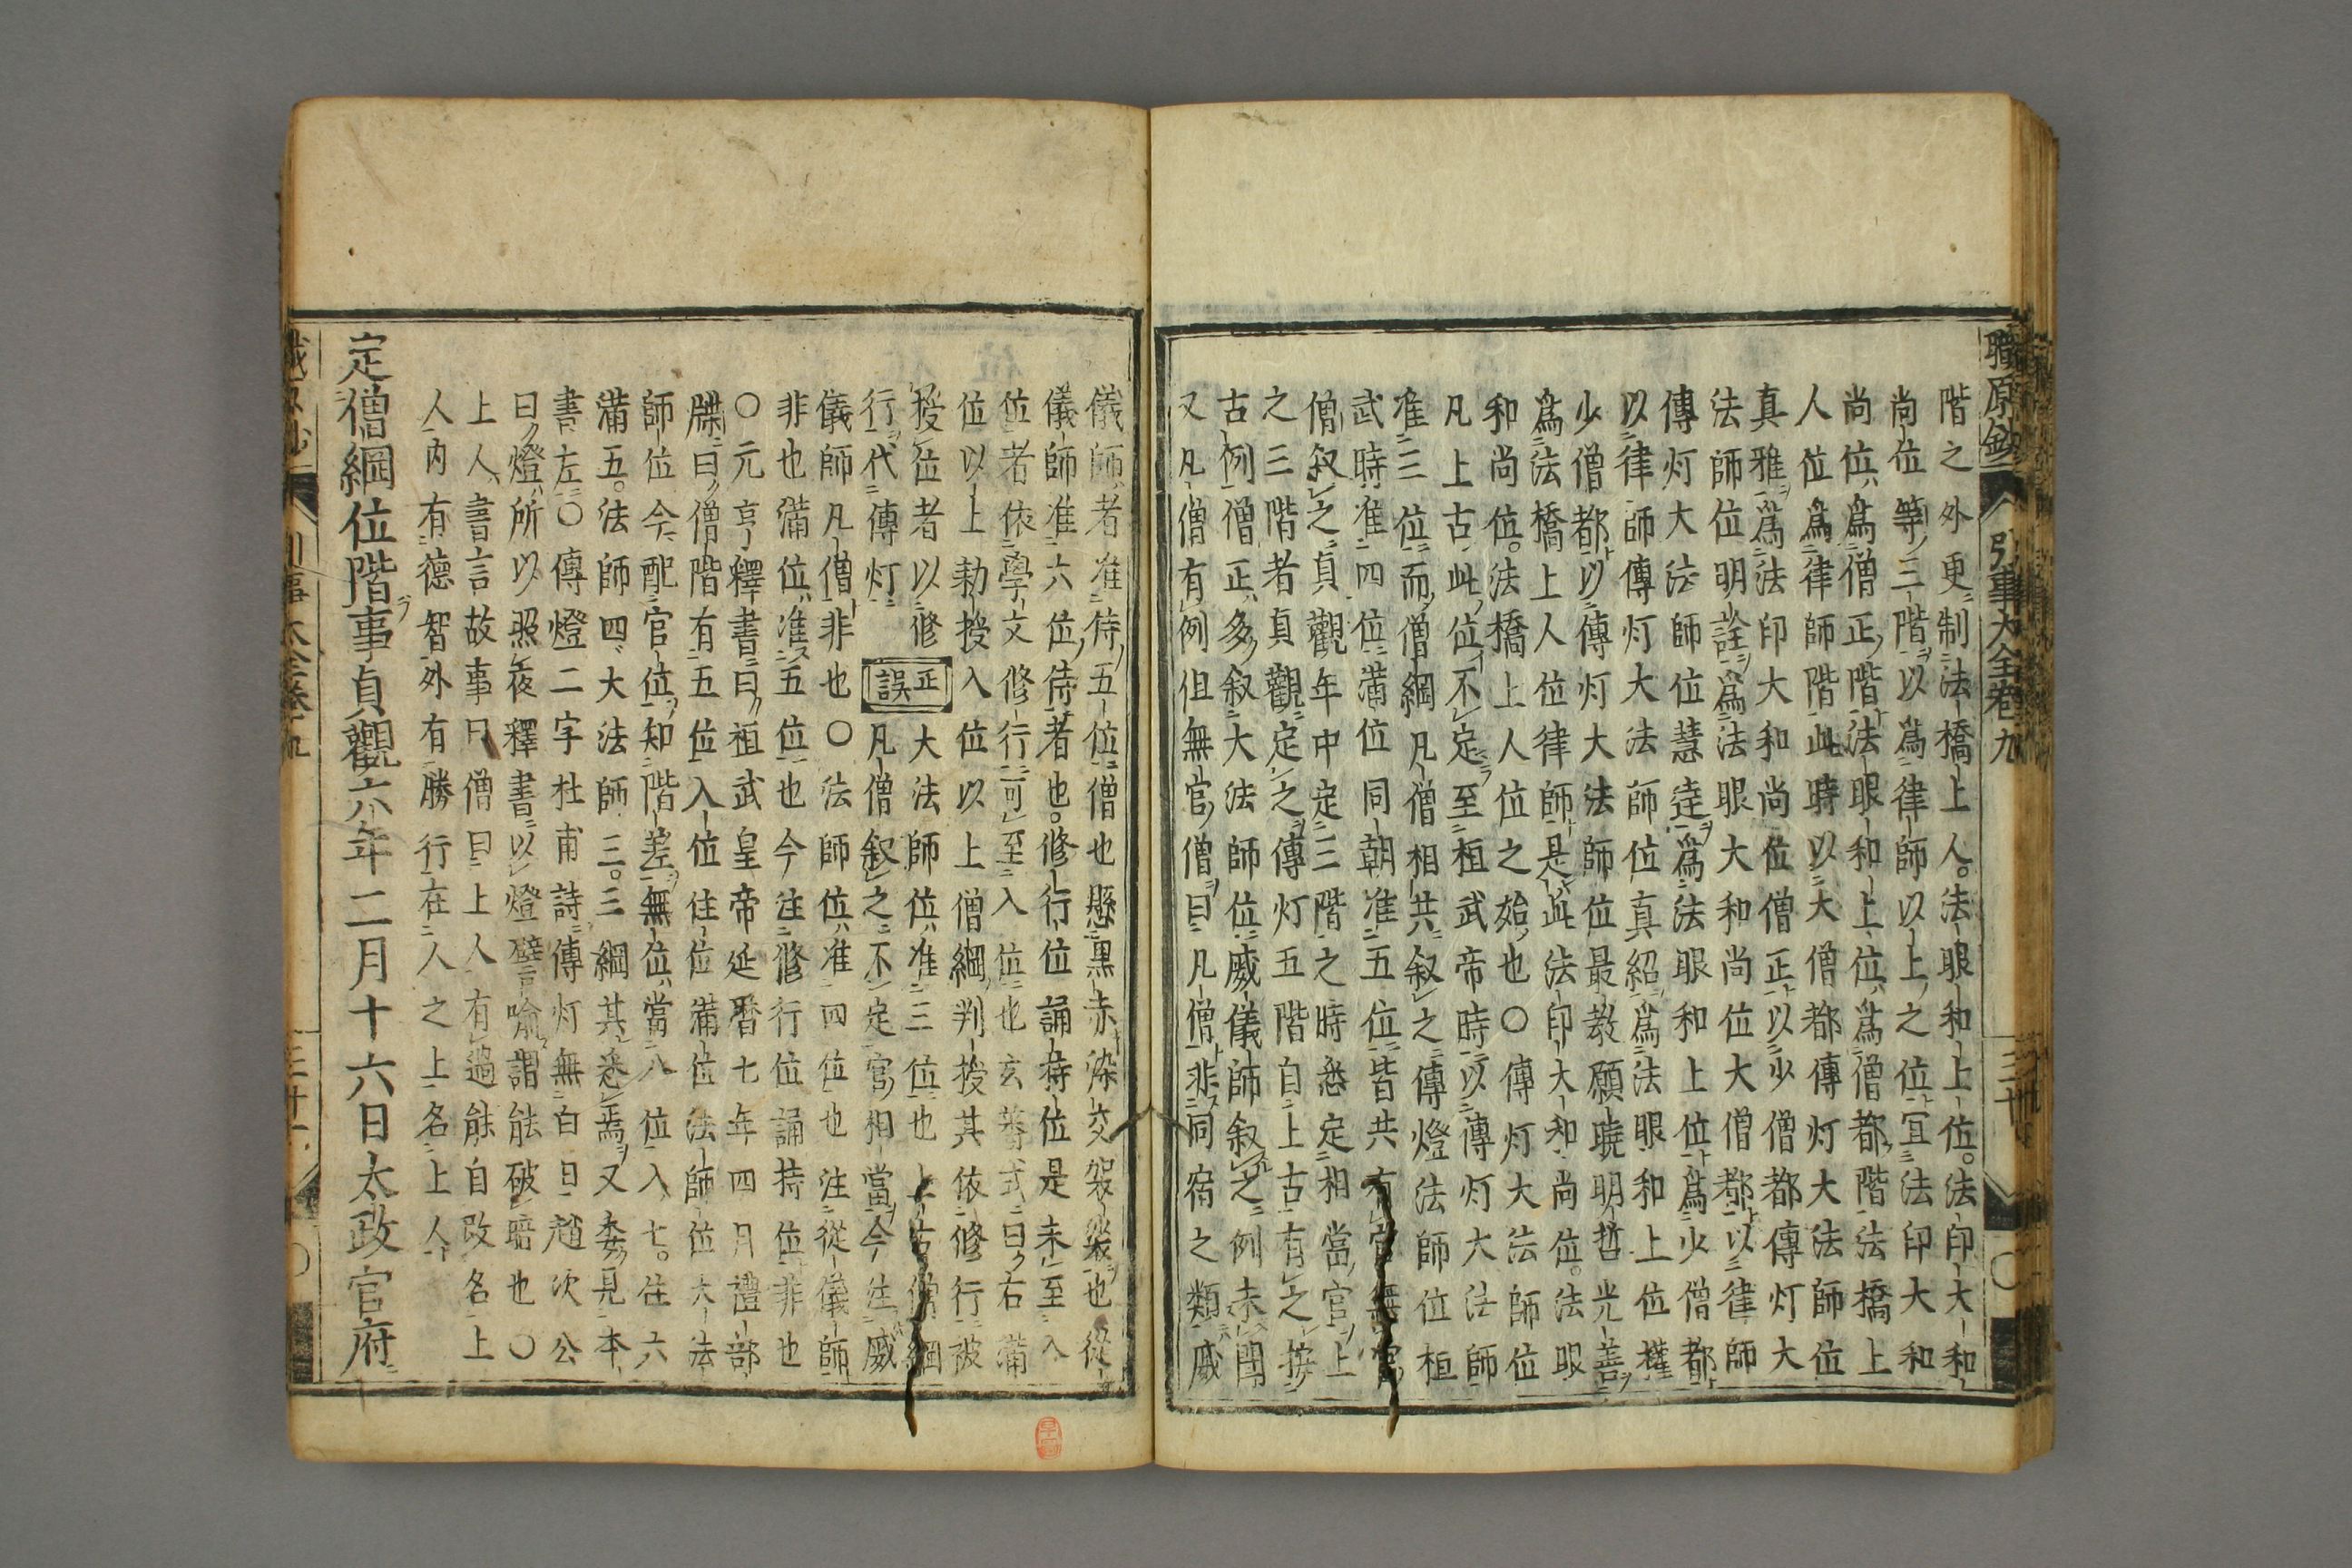 職原鈔 引事大全卷九 三十
階之外更制法橋上人。法眼和上位。法印大和
尚位等三階以爲律師以上之位宜法印大和
尚位爲僧正階法眼和上位爲僧都階法橋上
人位爲律師階此時以大僧都傳灯大法師位
真雅爲法印大和尚位僧正以少僧都傳灯大
法師位明詮爲法眼大和尚位大僧都以律師
傳灯大法師位慧達爲法眼和上位爲少僧都
以律師傳灯大法師位真紹爲法眼和上位權
少僧都以傳灯大法師位最教願曉明哲光善
爲法橋上人位律師是此法印大和尚位。法眼
和尚位。法橋上人位之始也〇傳灯大法師位
凡上古此位不定至桓武帝時以傳灯大法師
准三位而僧綱凡僧相共叙之傳燈法師位桓
武時准四位滿位同朝准五位皆共有官無官
僧叙之貞觀年中定三階之時悉定相當官上
之三階者貞觀定之傳灯五階自上古有之按
古例僧正多叙大法師位威儀師叙之例未聞
又凡僧有例但無官僧曰凡僧非同宿之類威
儀師者准侍五位僧也懸黒赤染交袈裟也從
儀師准六位侍者也。修行位誦持位是未至入
位者依學文修行可至入位也玄蕃式曰右滿
位以上勅授入位以上僧綱判授其依修行被
授位者以修 大法師位准三位也上古僧綱
行代傳灯 正誤 凡僧叙之不定官相當今注威
儀師凡僧非也〇法師位准四位也注從儀師
非也滿位准五位也今注修行位誦持位非也
〇元亨釋書曰祖武皇帝延暦七年四月禮部
牒曰僧階有五位入位住位滿位法師位大法
師位今配官位知階差無位當八位入七。住六
滿五。法師四大法師三。三綱其卷焉又委見本
書左〇傳燈二字杜甫詩傳灯無白日趙次公
曰燈所以照夜釋書以燈譬喻謂能破暗也〇
上人書言故事曰僧曰上人有過能自改名上
人内有德智外有勝行在人之上名上人
定僧綱位階事貞觀六年二月十六日太政官府